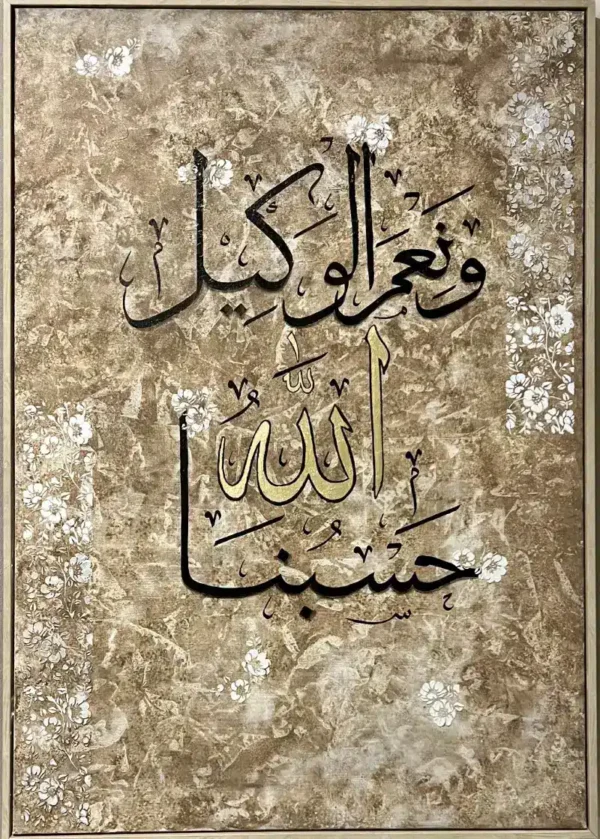 ونعم الوكيل
الله
حسبنا